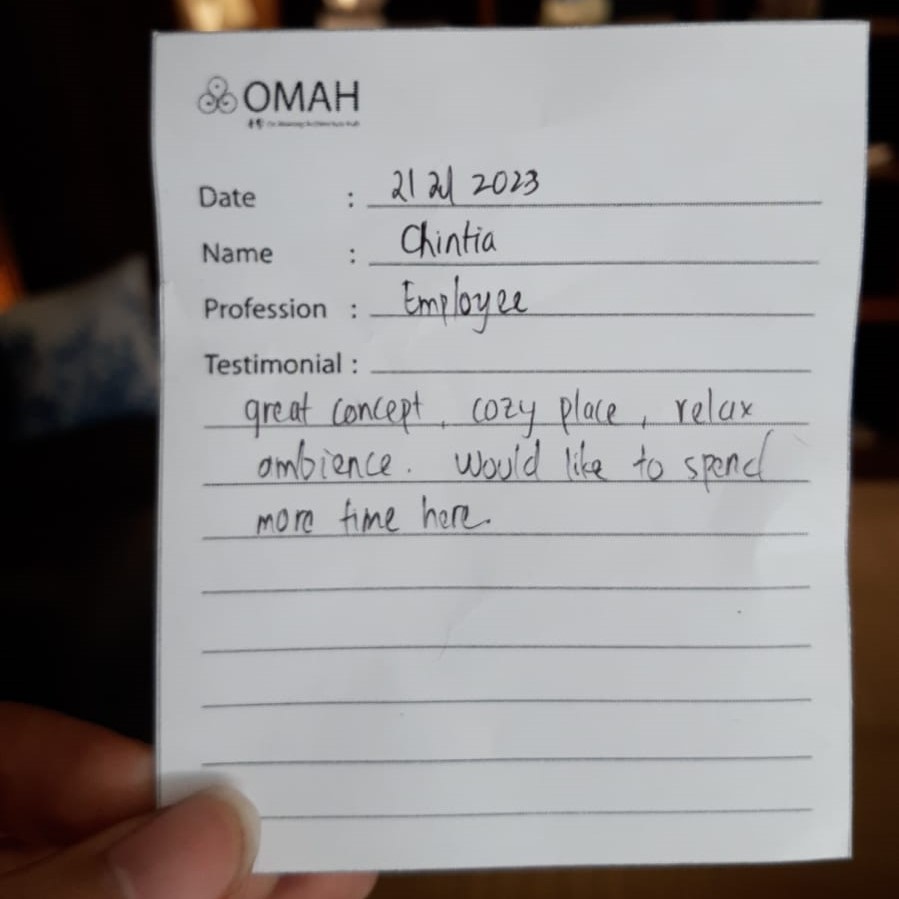 OMAH
Date : 21 Jul 2023
Name : Chintia
Profession : Employee
Testimonial :
great concept, cozy place, relax
ambience. Would like to spend
more time here.